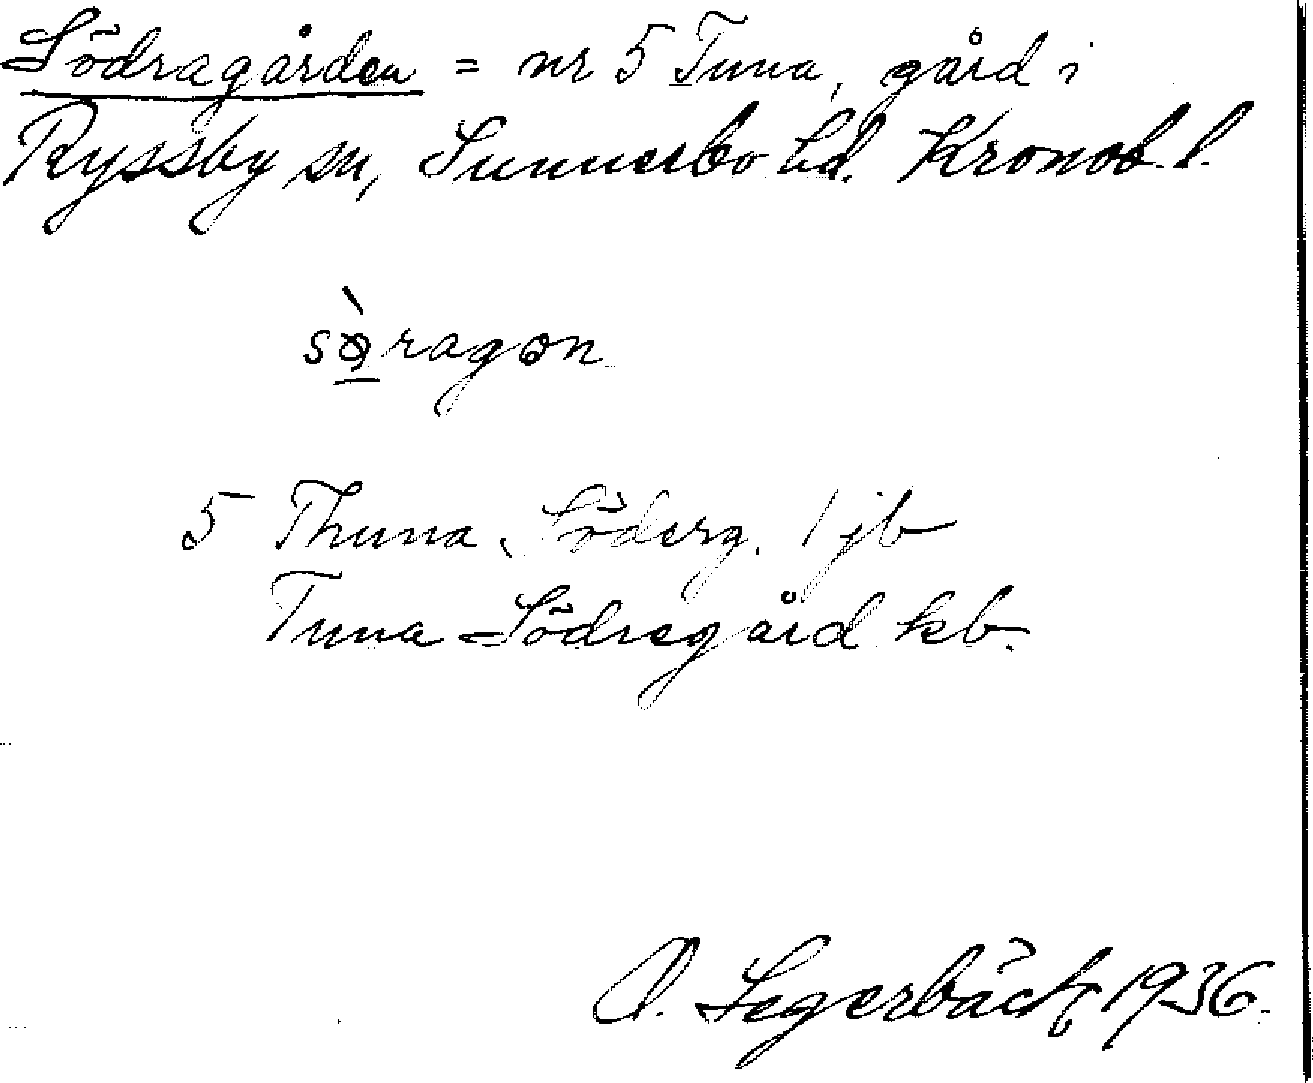 Södragården = nr 5 Tuna, gård i
Ryssby sn, Sunnerbo hd. Kronob. l.
5 Thuna, Söderg. 1 jb
Tuna Södregård kb.
O. Segerbäck 1936.